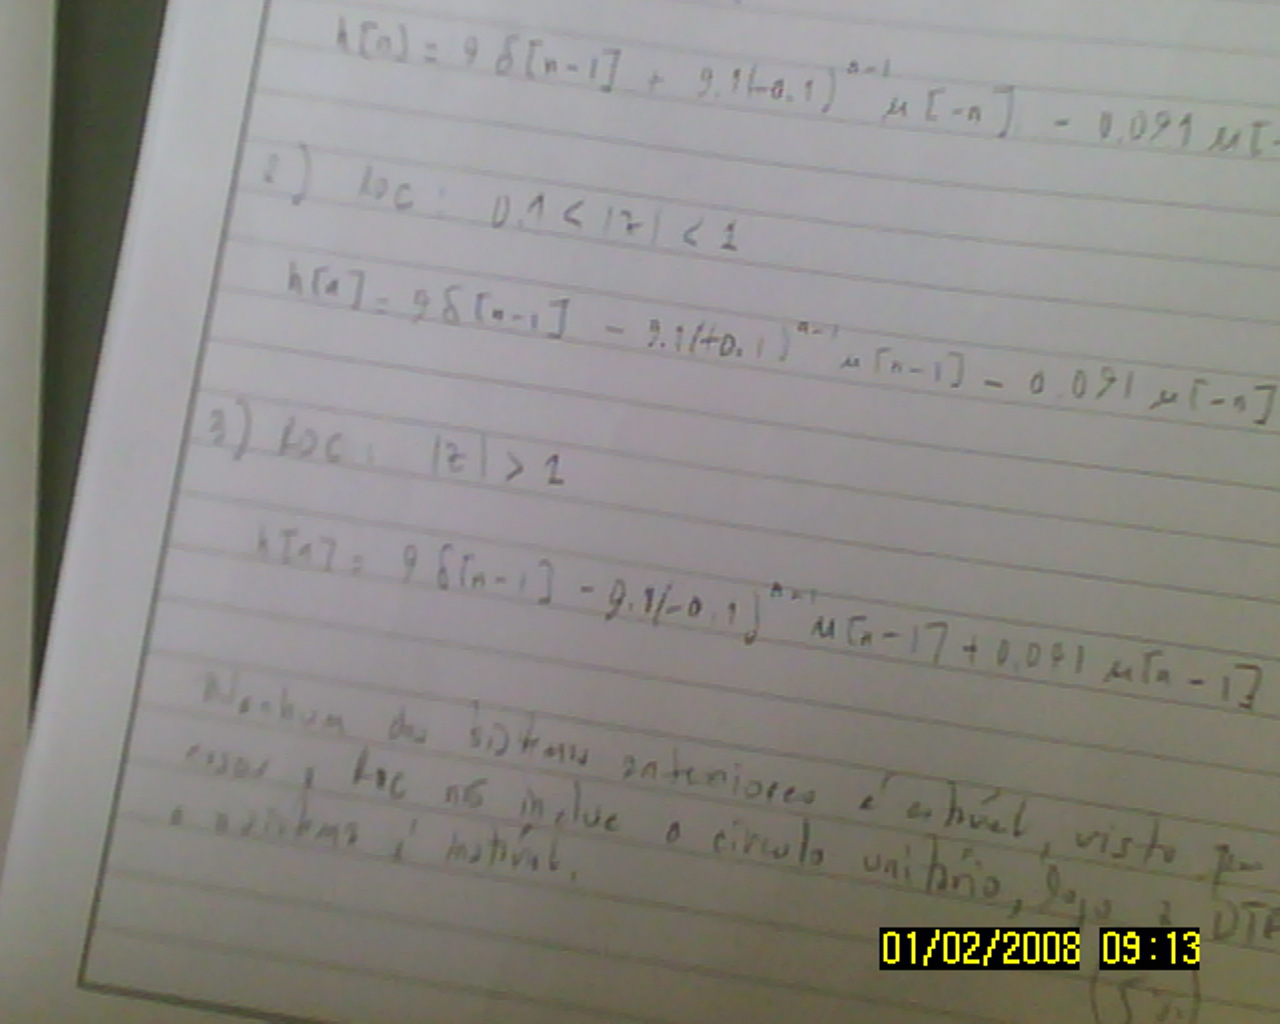 h[n] = 9 δ[n-1] + 9.1(-0.1)^{n-1} μ[-n] - 0.091 μ[-
2) ROC: 0.1 < |z| < 1
h[n] = 9δ[n-1] - 9.1(-0.1)^{n-1} μ[n-1] - 0.091 μ[-n]
3) ROC: |z| > 1
h[n] = 9 δ[n-1] - 9.1(-0.1)^{n-1} μ[n-1] + 0.091 μ[n-1]
Nenhum dos sistemas anteriores é estável, visto
casos, ROC não inclue o círculo unitário, logo a DTF
o sistema é instável.
01/02/2008 09:13